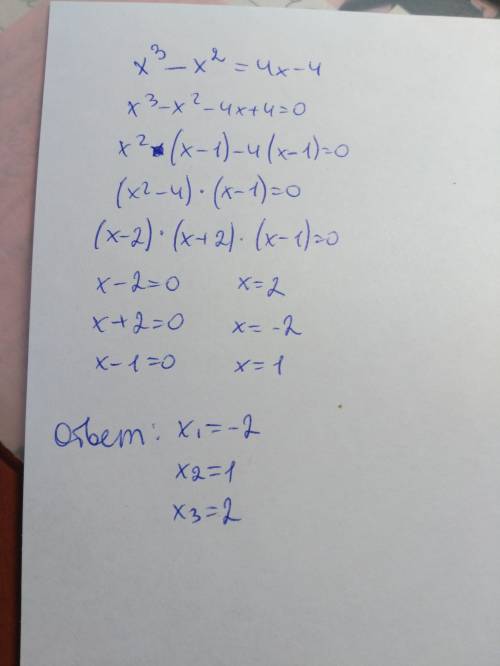 x³ – x² = 4x – 4
x³ – x² – 4x + 4 = 0
x² · (x – 1) – 4 (x – 1) = 0
(x² – 4) · (x – 1) = 0
(x – 2) · (x + 2) · (x – 1) = 0
x – 2 = 0 x = 2
x + 2 = 0 x = -2
x – 1 = 0 x = 1
Ответ: x₁ = -2
x₂ = 1
x₃ = 2